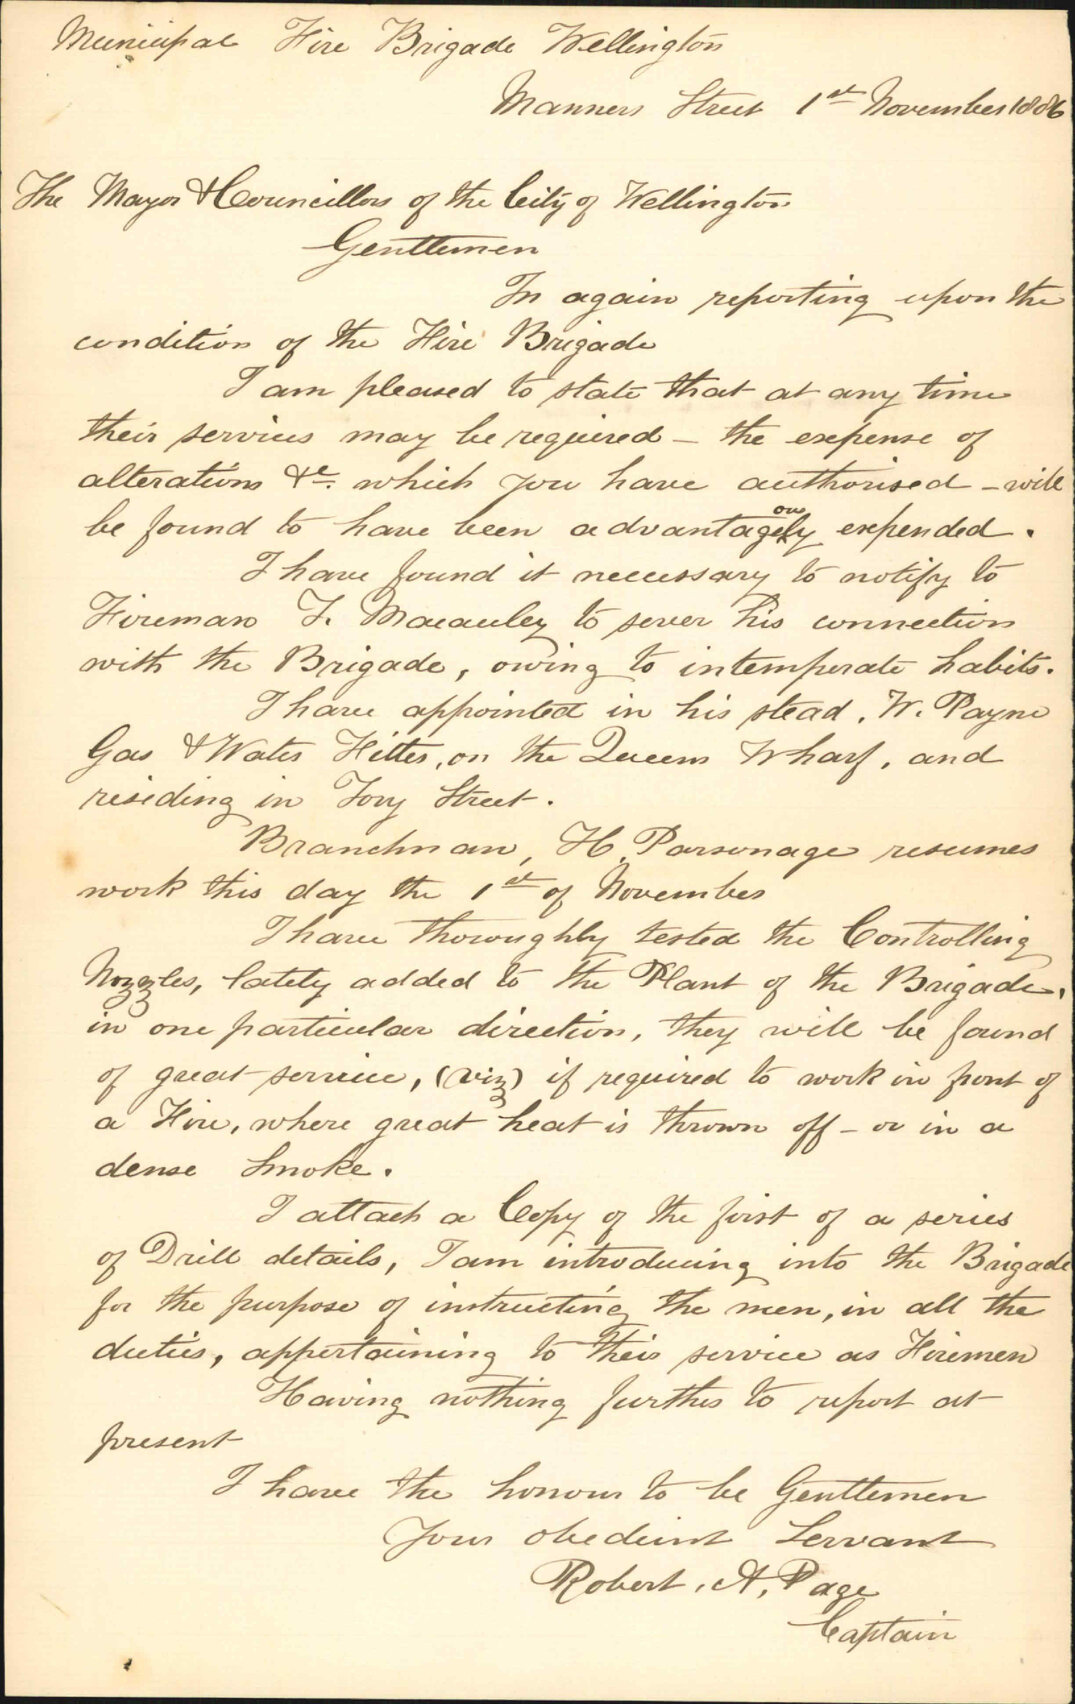 Municipal Fire Brigade Wellington
Manners Street 1st November 1886
The Mayor & Councillors of the City of Wellington
Gentlemen
In again reporting upon the
condition of the Fire Brigade
I am pleased to state that at any time
their services may be required – the expense of
alterations &c. which you have authorised – will
be found to have been advantageously expended.
I have found it necessary to notify to
Fireman F. Macauley to sever his connection
with the Brigade, owing to intemperate habits.
I have appointed in his stead, W. Payne
Gas & Water Fitter, on the Queens Wharf, and
residing in Tory Street.
Branchman, H. Parsonage resumes
work this day the 1st of November
I have thoroughly tested the Controlling
Nozzles, lately added to the Plant of the Brigade,
in one particular direction, they will be found
of great service, (viz) if required to work in front of
a Fire, where great heat is thrown off – or in a
dense Smoke.
I attach a Copy of the first of a series
of Drill details, I am introducing into the Brigade
for the purpose of instructing the men, in all the
duties, appertaining to their service as Firemen
Having nothing further to report at
present
I have the honour to be Gentlemen
Your obedient Servant
Robert. A. Page
Captain